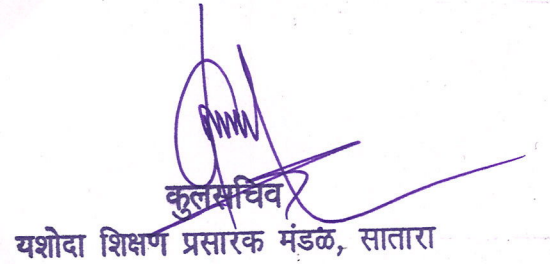 कुलसचिव
यशोदा शिक्षण प्रसारक मंडळ, सातारा